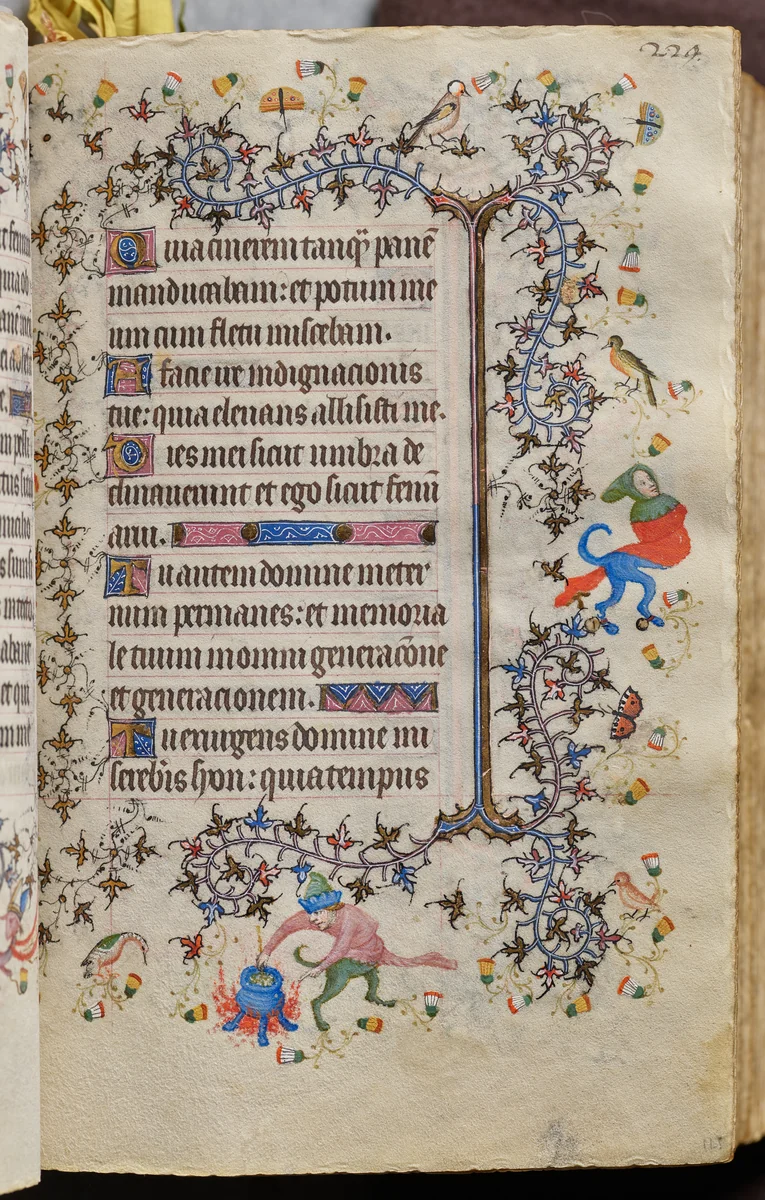 224.
Quia cinerem tanqȝ panē
manducabam: et potum me
um cum fletu miscebam.
A facie ire indignacionis
tue: quia eleuans allisisti me.
Dies mei sicut umbra de
clinauerunt et ego sicut fenū
arui.
Tu autem domine in eter
num permanes: et memoria
le tuum in omni generacōne
et generacionem.
Tu exurgens domine mi
sereb̄is syon: quia tempus